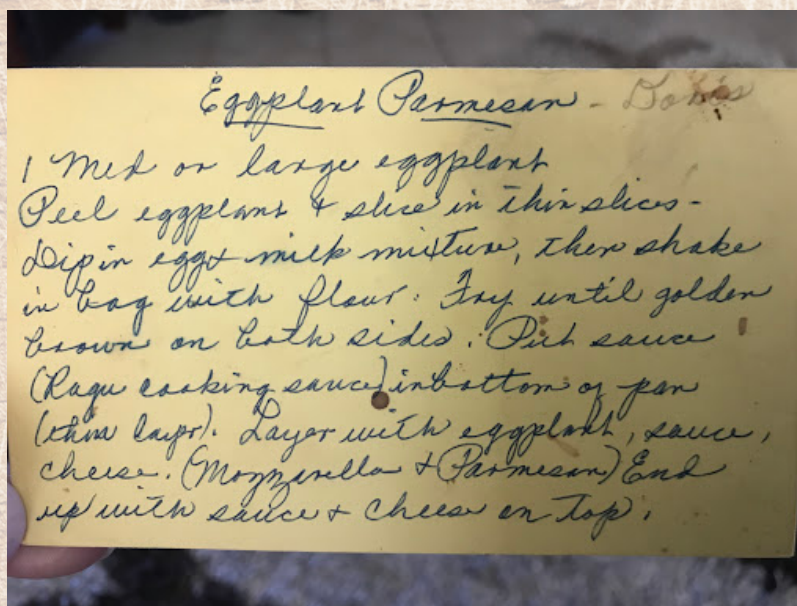 Eggplant Parmesan - Doris
1 Med or large eggplant
Peel eggplant & slice in thin slices -
Dip in egg & milk mixture, then shake
in bag with flour. Fry until golden
brown on both sides. Put sauce
(Ragu cooking sauce) in bottom of pan
(thin layer). Layer with eggplant, sauce,
cheese. (Mozzarella & Parmesan) End
up with sauce & cheese on top.